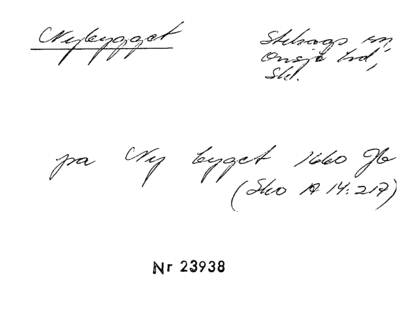 Nybygget
Stehags sn,
Onsjö hd,
Sk.
på Ny bygget 1660 Jb
(Sko A 14:217)
Nr 23938